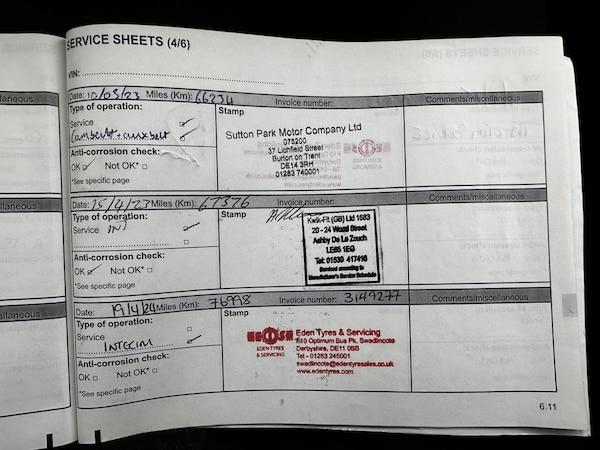 SERVICE SHEETS (4/6)
VIN:
Date: 10/03/23 Miles (Km): 66234 Invoice number: Comments/miscellaneous
Type of operation:
Service
Cambelt + auxbelt
Anti-corrosion check:
OK Not OK*
*See specific page
Stamp
Sutton Park Motor Company Ltd
075200
37 Lichfield Street
Burton on Trent
DE14 3RH
01283 740001
Date: 15/4/23 Miles (Km): 67376 Invoice number: Comments/miscellaneous
Type of operation:
Service INT
Anti-corrosion check:
OK Not OK*
*See specific page
Stamp
Kwik-Fit (GB) Ltd 1683
20 - 24 Wood Street
Ashby De La Zouch
LE65 1EG
Tel: 01530 417416
Serviced according to
Manufacturer's Service Schedule
Date: 19/4/24 Miles (Km): 76998 Invoice number: 3149277 Comments/miscellaneous
Type of operation:
Service
INTERIM
Anti-corrosion check:
OK Not OK*
*See specific page
Stamp
EDEN TYRES
& SERVICING
Eden Tyres & Servicing
Optimum Bus Pk, Swadlincote
Derbyshire, DE11 0BB
Tel - 01283 245001
swadlincote@edentyresales.co.uk
www.edentyres.com
6.11